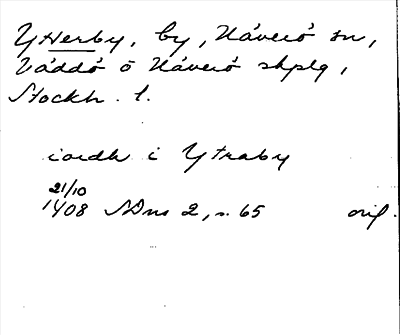 Ytterby, by, Häverö sn,
Väddö o Häverö skplg,
Stockh. l.
iordh i Ytraby
21/10
1408 SDns 2, s. 65 orig.